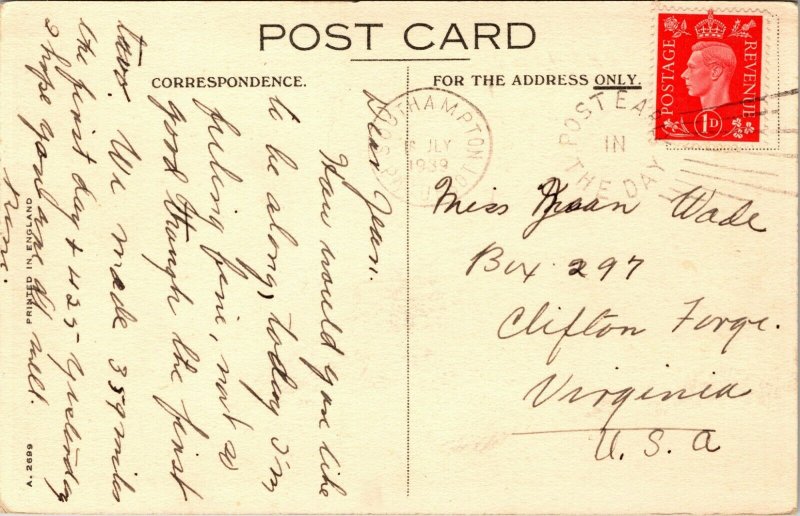 POST CARD
CORRESPONDENCE.
FOR THE ADDRESS ONLY.
POSTAGE REVENUE
1D
SOUTHAMPTON
JLY
1939
POST EARLY
IN
THE DAY
Dear Jean.
How would you like
to be along, today I'm
feeling fine, not a
good though the first
two. We made 359 miles
the first day & 425 - yesterday
I hope you are all well.
Miss Jean Wade
Box 297
Clifton Forge.
Virginia
U.S.A
PRINTED IN ENGLAND
A. 2699